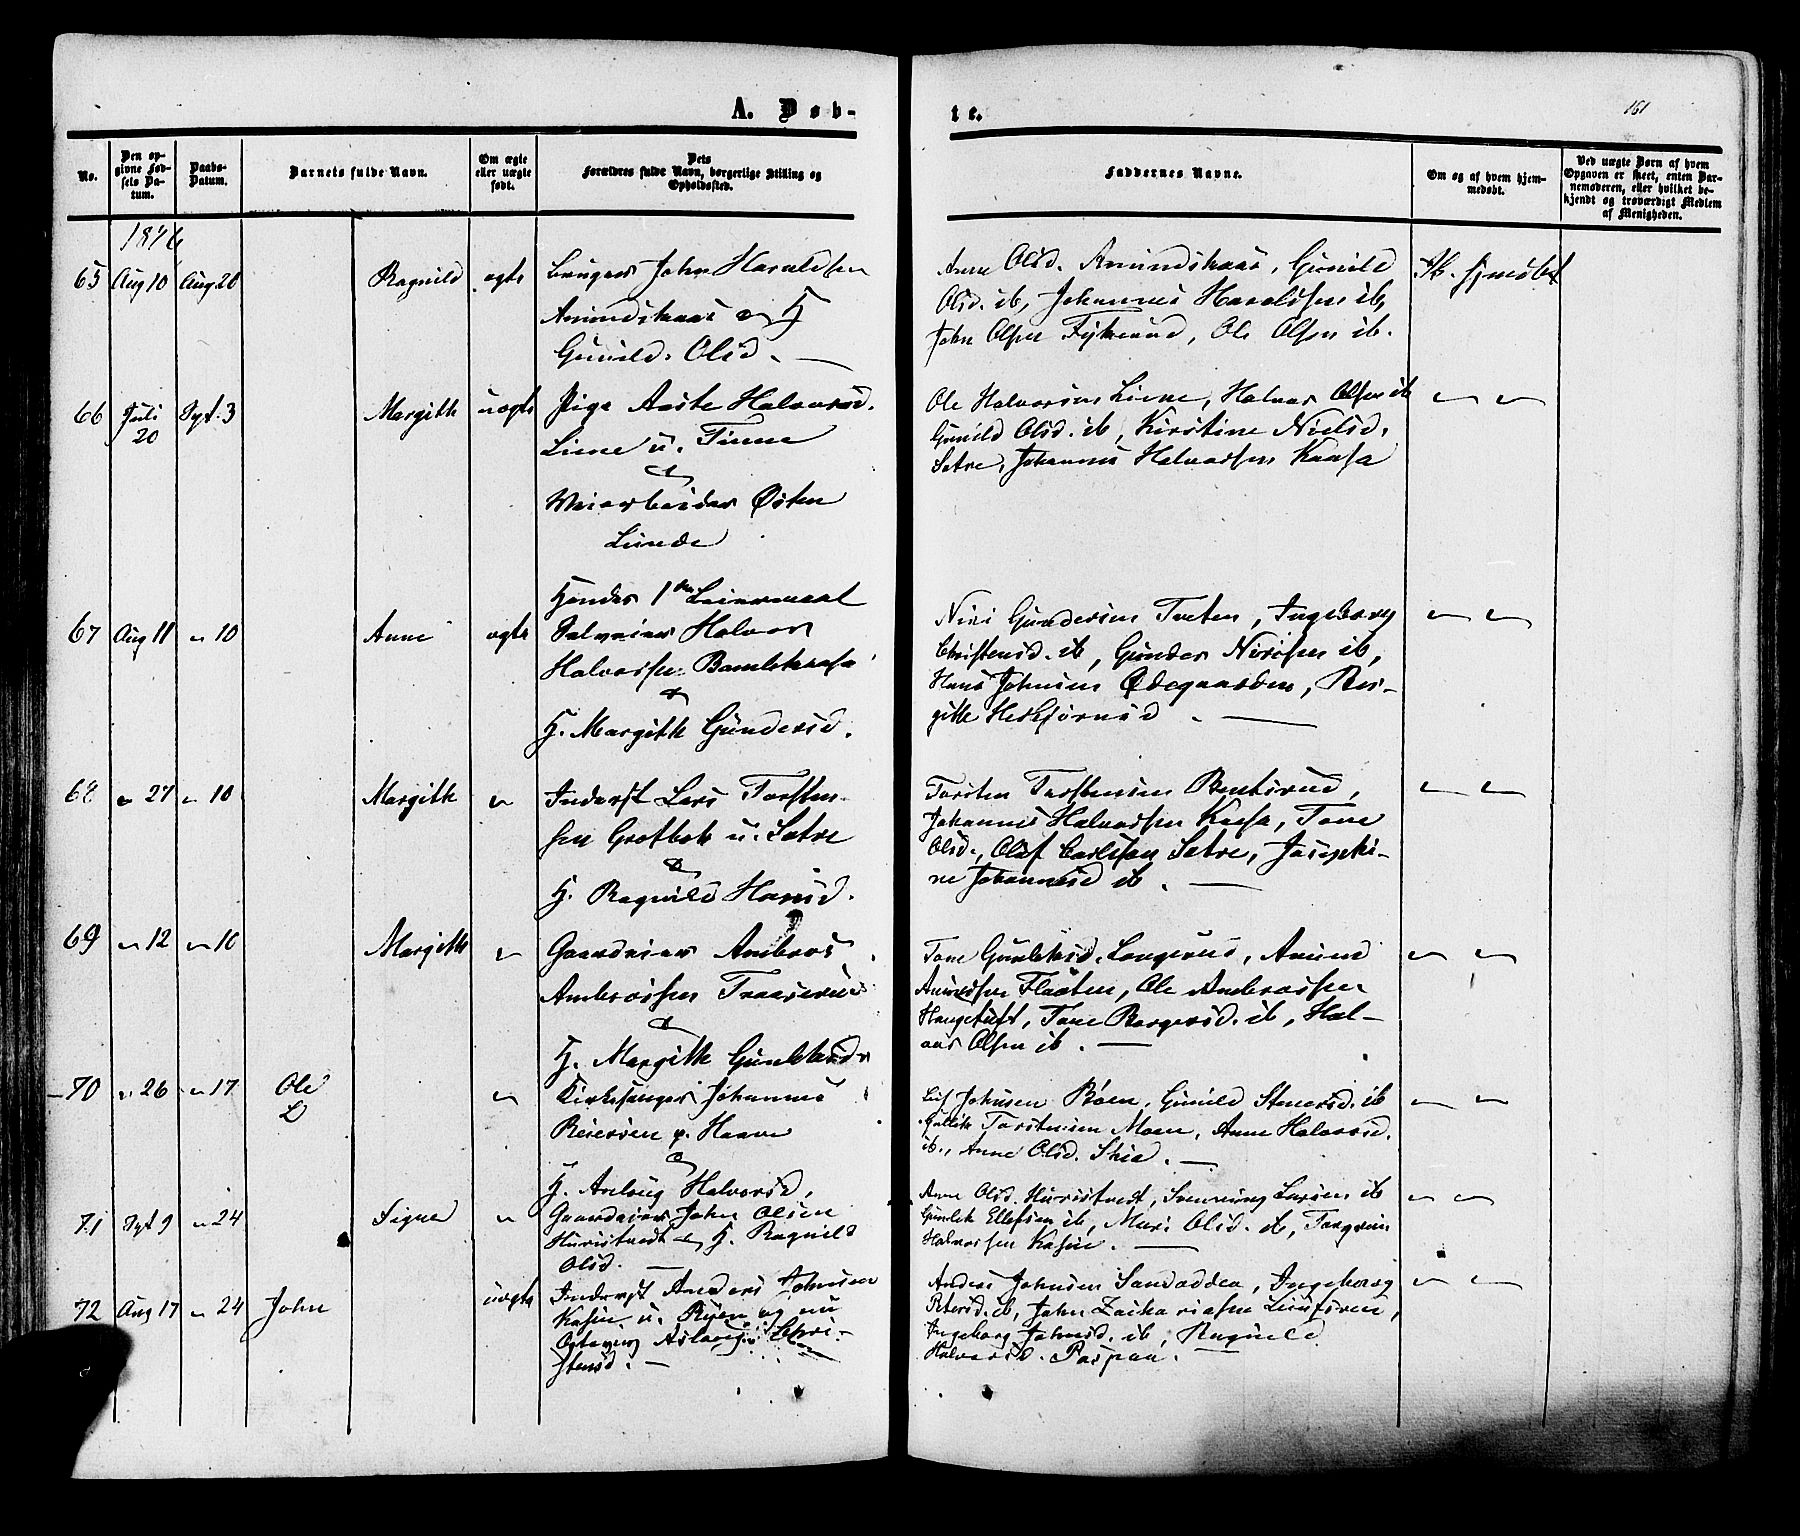 A. Døb-
te.
161
No.
Den opgivne Fødsels Datum.
Daabs-Datum.
Barnets fulde Navn.
Om ægte eller uægte født.
Dets Forældres fulde Navn, borgerlige Stilling og Opholdssted.
Faddernes Navne.
Om og af hvem hjemmedøbt.
Ved uægte Børn af hvem Opgaven er skeet, enten Barnemoderen, eller hvilket bekjendt og troværdigt Medlem af Menigheden.
1876
65 Aug 10 Aug 20 Ragnild ægte Bruger John Haraldsen
Amundskaas & H
Gunild Olsd. —
Anne Olsd. Amundskaas, Gunild
Olsd. ib, Johannes Haraldsen ib,
John Olsen Fykerud, Ole Olsen ib.
Ik. hjmdøbt
66 Juli 20 Sept. 3 Margith uægte Pige Aaste Halvorsd.
Liene u. Tinne
&
Veiarbeider Østen
Lunde
Hendes 1ste Leiermaal
Ole Halvorsen Liene, Halvor Olsen ib
Gunild Olsd. ib, Kirstine Nielsd.
Satre, Johannes Halvorsen Kaasa
67 Aug 11 " 10 Anne ægte Selveier Halvor
Halvorsen Bamlekaasa
&
H. Margith Gundersd.
Niri Gundersen Tveten, Ingeborg
Christensd. ib, Gunder Nirisen ib,
Hans Johnsen Ødegaarden, Bir-
gitte Herbjørnsd. —
68 " 27 " 10 Margith " Inderst Lars Torsten-
sen Grotbæk u. Satre
&
H. Ragnild Hansd.
Torsten Torstensen Bentsrud,
Johannes Halvorsen Kaasa, Tone
Olsd., Olaf Carlsen Satre, Josephi-
ne Johannesd ib. —
69 " 12 " 10 Margith " Gaardeier Ambros
Ambrossen Traaserud
&
H. Margith Gunleksd
Tone Gunleksd. Langerud, Amund
Amundsen Flaaten, Ole Ambrossen
Haugetuft, Tone Borgersd. ib, Hal-
vor Olsen ib. —
70 " 26 " 17 Ole " Kirkesanger Johannes
Reiersen p. Haave
&
H. Aslaug Halvorsd.
Leif Johnsen Bøen, Gunild Steversd. ib
Gullik Torstensen Moen, Anne Halvorsd.
ib., Anne Olsd. Skie. —
71 Sept 9 " 24 Signe " Gaardeier John Olsen
Huristvedt & H. Ragnild
Olsd. —
Anne Olsd. Huristvedt, Svenning Larsen ib
Gunlek Ellefsen ib, Mari Olsd. ib, Torgrim
Halvorsen Kasin. —
72 Aug 17 " 24 John uægte Inderst Anders Johnsen
Kasin u. og nu
Aslaug Chri-
stensd. —
Anders Johnsen Sandodden, Ingeborg
Petersd. ib, John Zachariasen
Ingeborg Johnsd. ib, Ragnild
Halvorsd.